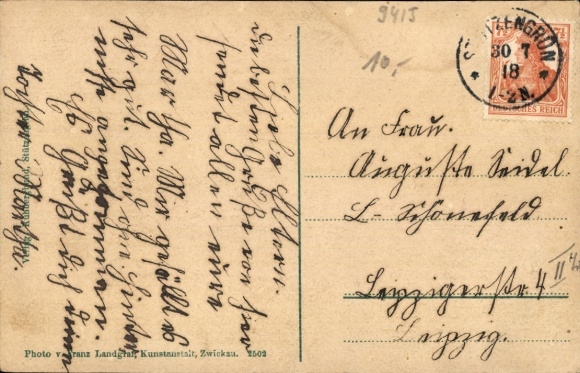 9415
10,-
STÜTZENGRÜN
30 7
18
1-2N.
7½
DEUTSCHES REICH
An Frau.
Auguste Seidel.
L- Schönefeld
Leipzigerstr 4 II
Leipzig.
Liebe Eltern.
die besten Grüße von hier
sendet allen eure
Martha. Mir gefällt es
sehr gut. Sind ohne
angekommen.
Es grüßt dich
Photo v. Franz Landgraf, Kunstanstalt, Zwickau. 2502